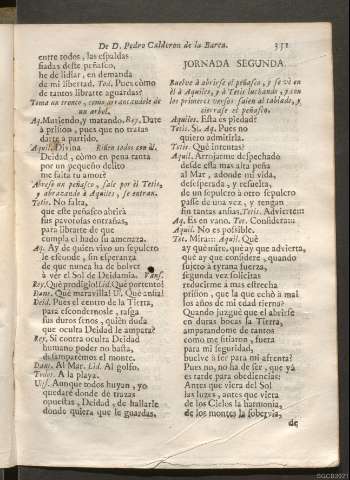 De D. Pedro Calderon de la Barca. 351
entre todos, las espaldas
fiadas deste peñasco,
he de lidiar, en demanda
de mi libertad. Tod. Pues còmo
de tantos librarte aguardas?
Toma un tronco, como arrancandole de
un arbol.
Aq. Muriendo, y matando. Rey. Date
à prision, pues que no tratas
darte à partido.
Aquil. Divina Riñen todos con èl.
Deidad, còmo en pena tanta
por un pequeño delito
me falta tu amor?
Abrese un peñasco, sale por èl Tetis,
y abrazando à Aquiles, se entran.
Tetis. No falta,
que este peñasco abrirà
sus pavorosas entrañas,
para librarte de que
cumpla el hado su amenaza.
Aq. Ay de quien vivo un sepulcro
le esconde, sin esperanza
de que nunca ha de bolver
à vèr el Sol de Deidamia. Vanse.
Rey. Què prodigio! Lid. Què portento!
Dant. Què maravilla! Ul. Què ansia!
Deid. Pues el centro de la Tierra,
para escondernosle, rasga
sus duros senos, quièn duda
que oculta Deidad le ampara?
Rey. Si contra oculta Deidad
humano poder no basta,
desamparèmos el monte.
Dant. Al Mar. Lid. Al golfo.
Todos. A la playa.
Ulis. Aunque todos huyan, yo
quedarè donde dè trazas
opuestas, Deidad, de hallarle
donde quiera que le guardas.
JORNADA SEGUNDA.
Buelve à abrirse el peñasco, y se vè en
èl à Aquiles, y à Tetis luchando, y con
los primeros versos salen al tablado, y
cierrase el peñasco.
Aquiles. Esta es piedad?
Tetis. Si. Aq. Pues no
quiero admitirla.
Tetis. Què intentas?
Aquil. Arrojarme despechado
desde essa mas alta peña
al Mar, adonde mi vida,
desesperada, y resuelta,
de un sepulcro à otro sepulcro
passe de una vez, y tengan
fin tantas ansias. Tetis. Advierte::
Aq. Es en vano. Tet. Considera::
Aquil. No es possible.
Tet. Mira:: Aquil. Què
ay que mire, què ay que advierta,
què ay que considere, quando
sujeto à tyrana fuerza,
segunda vez solicitas
reducirme à mas estrecha
prision, que la que echò à mal
los años de mi edad tierna?
Quando juzguè que el abrirse
en duras bocas la Tierra,
amparandome de tantos
como me sitiaron, fuera
para mi seguridad,
buelve à ser para mi afrenta?
Pues no, no ha de ser, que yà
es tarde para obediencias:
Antes que viera del Sol
las luzes, antes que viera
de los Cielos la harmonia,
de los montes la sobervia,
de